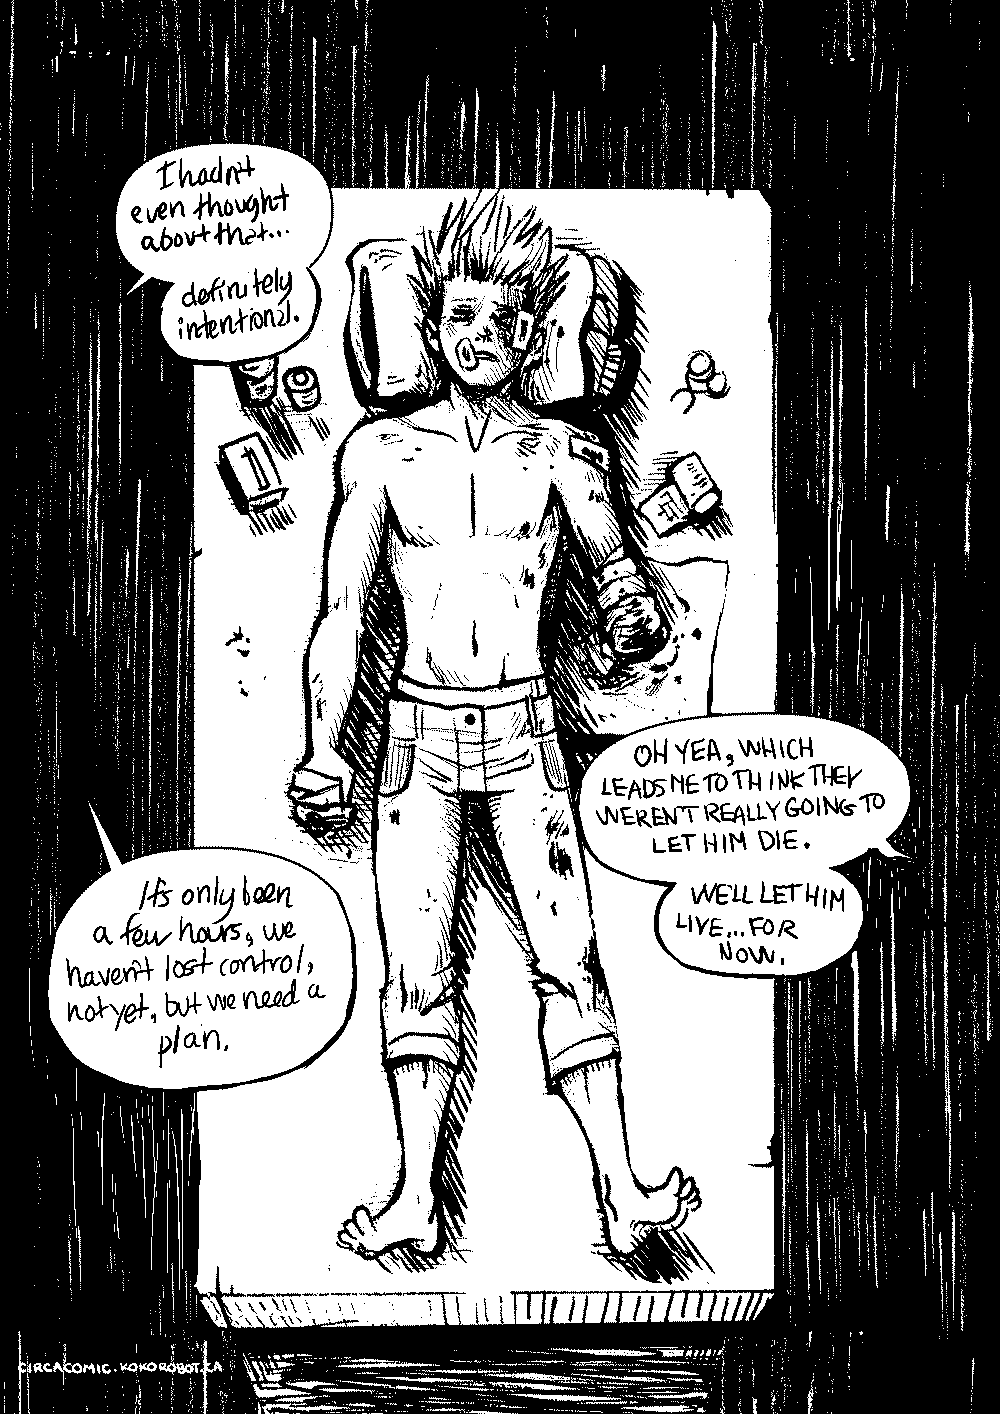 I hadn't
even thought
about that...
definitely
intentional.
OH YEA, WHICH
LEADS ME TO THINK THEY
WEREN'T REALLY GOING TO
LET HIM DIE.
WE'LL LET HIM
LIVE... FOR
NOW.
It's only been
a few hours, we
haven't lost control,
not yet, but we need a
plan.
CIRCACOMIC.KOKOROBOT.CA